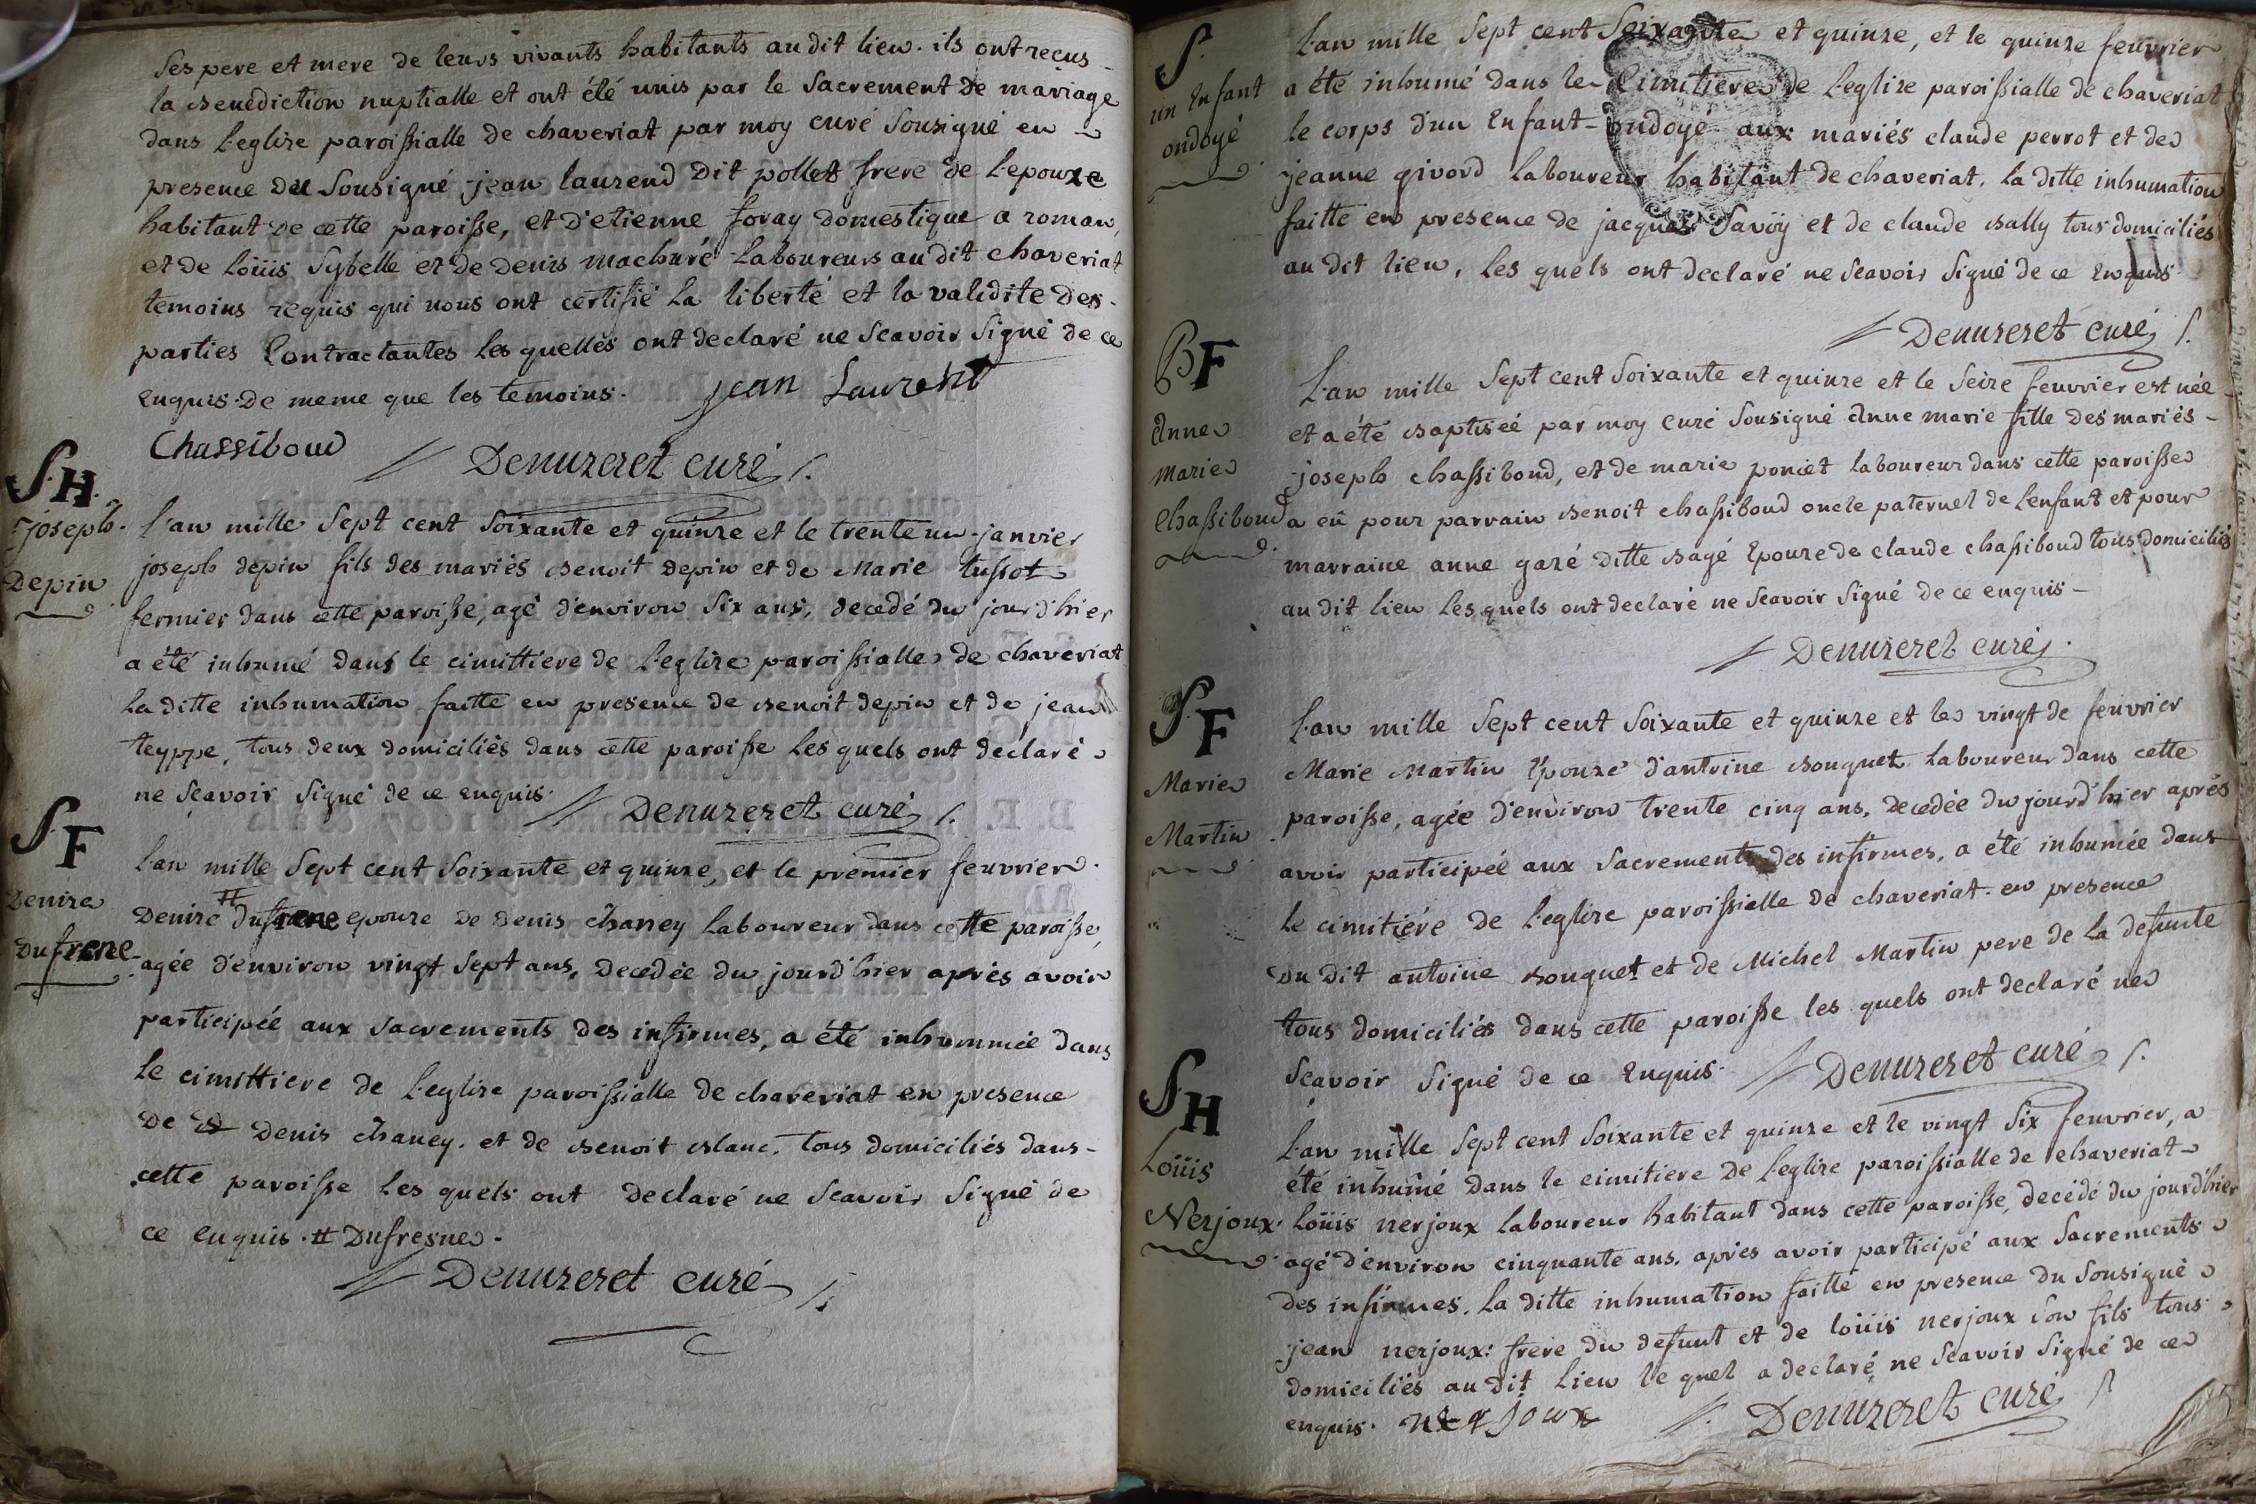 ses pere et mere de leurs vivants habitants audit lieu. ils ont reçus
la benediction nuptialle et ont été unis par le sacrement de mariage
dans l'eglise paroissialle de chaveriat par moy curé sousigné en
presence du sousigné jean laurend dit pollet frere de l'epouxe
habitant de cette paroisse, et d'etienne foray domestique a roman,
et de loüis sybelle et de denis machuré laboureurs au dit chaveriat
temoins requis qui nous ont certifié la liberté et la validite des
parties contractantes les quelles ont declaré ne scavoir signé de ce
enquis. de meme que les temoins. jean Laurent
Chassiboud Denuzeret curé
S. H.
joseph
Depin
l'an mille sept cent soixante et quinze et le trente un janvier
joseph depin fils des mariés benoit depin et de Marie tussot
fermier dans cette paroisse, agé d'environ six ans, decedé du jour d'hier
a été inhumé dans le cimittiere de l'eglize paroissialle de chaveriat
la ditte inhumation faitte en presence de benoit depin et de jean
teyppe, tous deux domiciliés dans cette paroisse les quels ont declaré
ne scavoir signé de ce enquis. Denuzeret curé
S. F
Denize
Dufrene
l'an mille sept cent soixante et quinze, et le premier feuvrier
Denize # dufrene epouze de denis chaney laboureur dans cette paroisse,
agée d'environ vingt sept ans, decedée du jourd'hier aprés avoir
participée aux sacrements des infirmes, a été inhummée dans
le cimittiere de l'eglize paroissialle de chaveriat en presence
de denis chaney. et de benoit blanc, tous domiciliés dans
cette paroisse les quels ont declaré ne scavoir signé de
ce enquis. # Dufresne.
Denuzeret curé
S.
un Enfant
ondoyé
l'an mille sept cent soixante et quinze, et le quinze feuvrier
a été inhumé dans le cimitiere de l'eglize paroissialle de chaveriat
le corps d'un enfant ondoyé aux mariés claude perrot et de
jeanne givord laboureur habitant de chaveriat. la ditte inhumation
faitte en presence de jacques savoÿ et de claude bally tous domiciliés
au dit lieu, les quels ont declaré ne scavoir signé de ce enquis
Denuzeret curé
B F
Anne
marie
chassiboud
l'an mille sept cent soixante et quinze et le seize feuvrier est née
et a été baptiseé par moy curé sousigné anne marie fille des mariés
joseph chassiboud, et de marie poncet laboureur dans cette paroisse
a eü pour parrain benoit chassiboud oncle paternel de l'enfant et pour
marraine anne gazé ditte bagé epouze de claude chassiboud tous domiciliés
au dit lieu les quels ont declaré ne scavoir signé de ce enquis
Denuzeret curé
S. F
Marie
Martin
l'an mille sept cent soixante et quinze et le vingt de feuvrier
Marie Martin epouze d'antoine bouquet laboureur dans cette
paroisse, agée d'environ trente cinq ans, decedée du jourd'hier aprés
avoir participée aux sacrements des infirmes, a été inhumée dans
le cimitiére de l'eglize paroissialle de chaveriat en presence
du dit antoine bouquet et de Michel Martin pere de la defunte
tous domiciliés dans cette paroisse les quels ont declaré ne
scavoir signé de ce enquis. Denuzeret curé
S. H
Loüis
Nerjoux
l'an mille sept cent soixante et quinze et le vingt six feuvrier, a
été inhumé dans le cimitiere de l'eglize paroissialle de chaveriat
loüis nerjoux laboureur habitant dans cette paroisse, decédé du jourd'hier
agé d'environ cinquante ans. aprés avoir participé aux sacrements
des infirmes, la ditte inhumation faitte en presence du sousigné
jean nerjoux: frere du defunt et de loüis nerjoux son fils tous
domiciliés au dit lieu le quel a declaré ne scavoir signé de ce
enquis. nerjoux Denuzeret curé